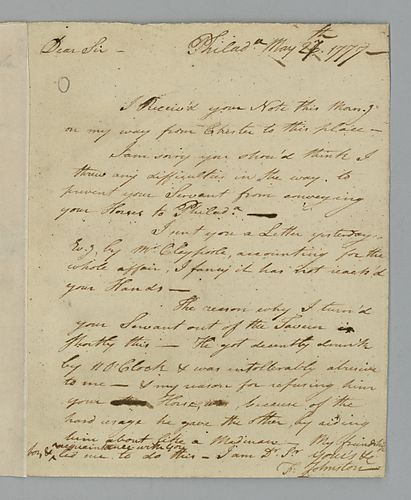 Dear Sir - Philad.ª May 27th 1777 -
I Receiv'd your Note this Morn.g
on my way from Chester to this place -
I am sorry you shou'd think I
threw any difficulties in the way to
prevent your Servant from conveying
your Horses to Philad.ª -
I sent you a Letter yesterday
Ev.g by Mr Claypoole, accounting for the
whole affair, I fancy it has not reach'd
your Hands -
The reason why I turn'd
your Servant out of the Tavern is
shortly this - He got decently drunk
by 11 O'Clock & was intollerably abusive
to me - & my reason for refusing him
your Horse, was because of the
hard usage he gave the other, by riding
him about like a Madman - My friendship
for, & acquaintance with you
led me to do this - I am Dr Sr Yours &c
F. Johnston